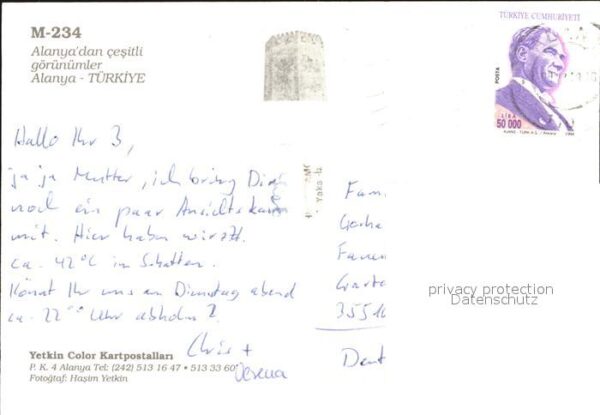 M-234
Alanya'dan çeşitli
görünümler
Alanya - TÜRKİYE
TÜRKİYE CUMHURİYETİ
POSTA
LİRA
50 000
Hallo Ihr 3,
ja ja Mutter, ich bring Dir
noch ein paar Ansichtskar
mit. Hier haben wir zzt.
ca. 42°C im Schatten.
Könnt Ihr uns am Dienstag abend
ca. 22°° Uhr abholen?
Chris +
Verena
Fam.
355
Deut
privacy protection
Datenschutz
Yetkin Color Kartpostalları
P. K. 4 Alanya Tel: (242) 513 16 47 • 513 33 60
Fotoğraf: Haşim Yetkin